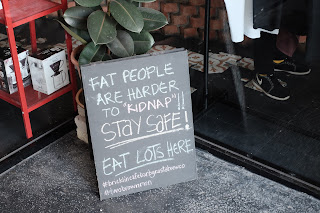 FAT PEOPLE
ARE HARDER
TO "KIDNAP"!!
STAY SAFE!
EAT LOTS HERE